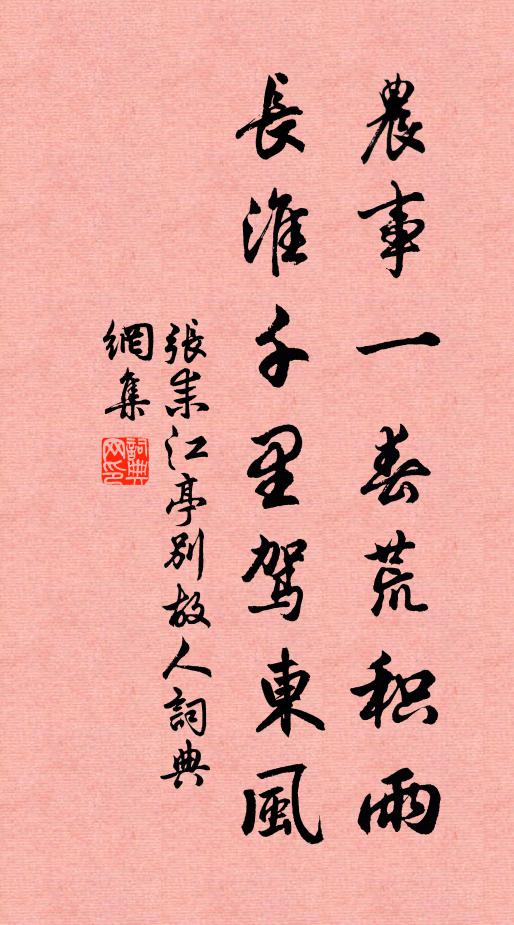 農事一春荒积雨
長淮千里駕東風
張耒江亭別故人詞典
網集
詞典
网印